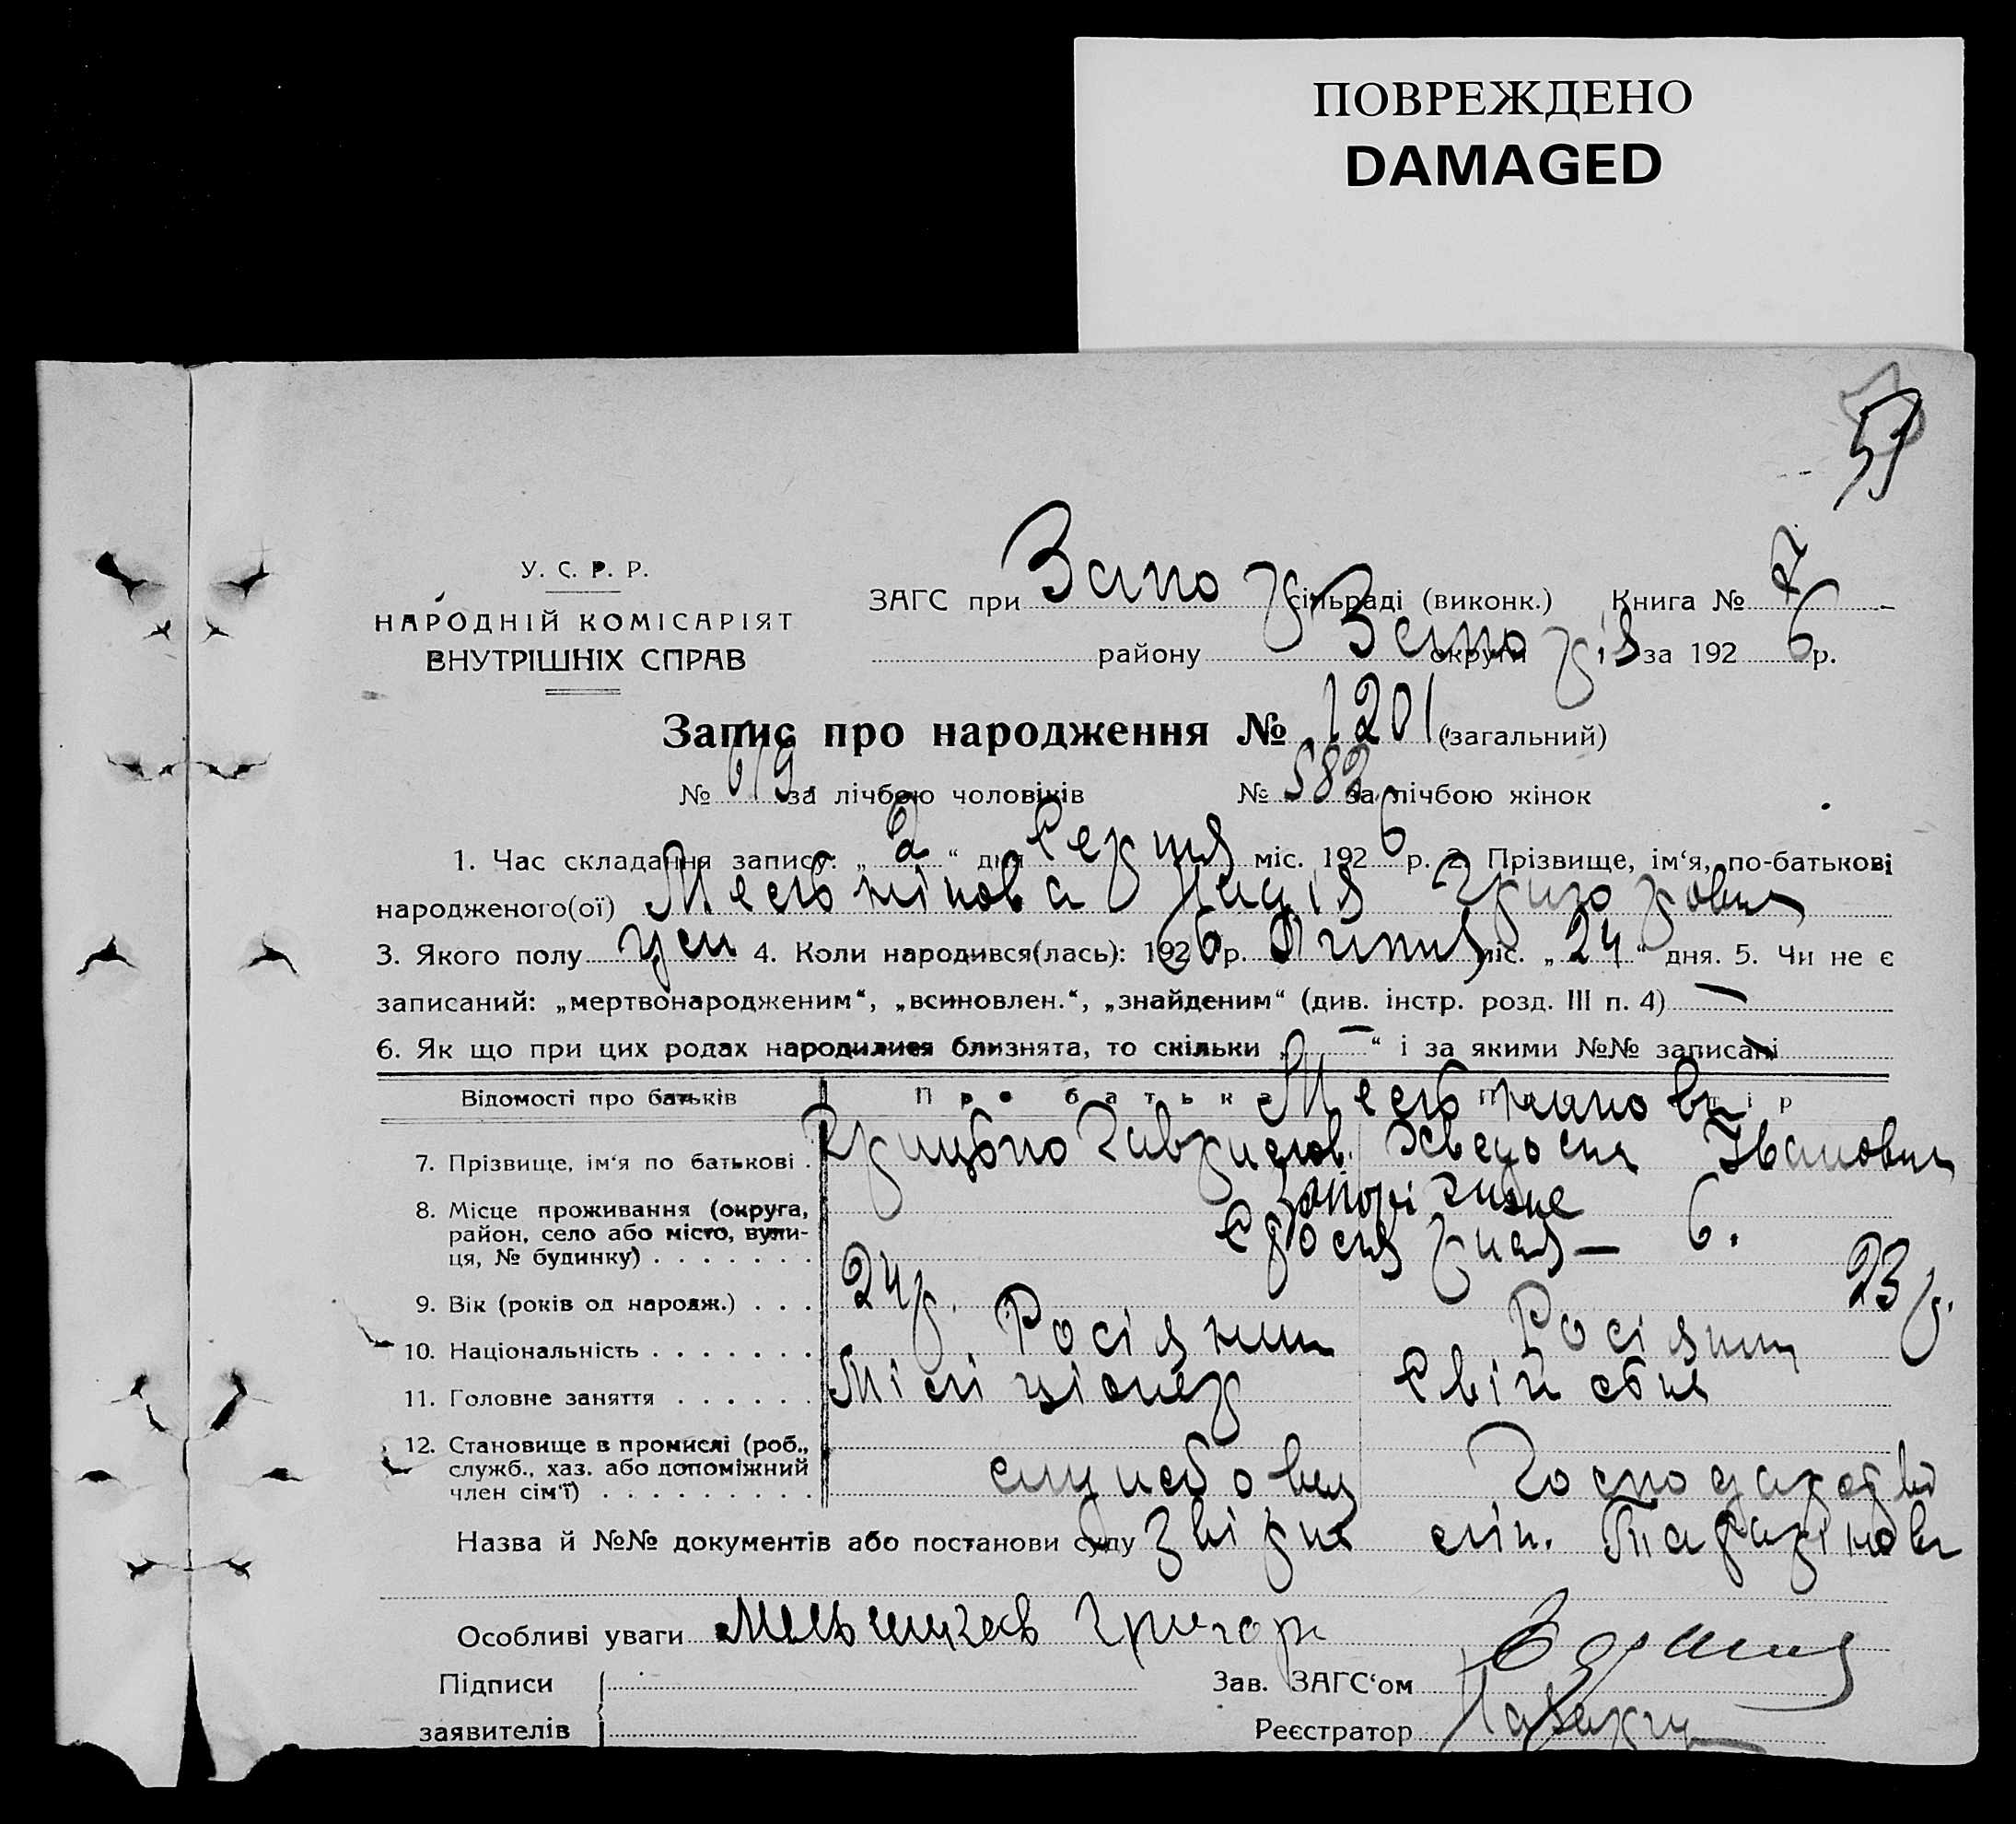 ПОВРЕЖДЕНО
DAMAGED
У. С. Р. Р.
НАРОДНІЙ КОМІСАРІЯТ
ВНУТРІШНІХ СПРАВ
ЗАГС при Запо сільраді (виконк.) Книга № 7
району Запо округи за 1926 р.
Запис про народження № 1201 (загальний)
№ 619 за лічбою чоловіків № 582 за лічбою жінок
1. Час складання запису: „2“ дня Серпня міс. 1926 р. 2. Прізвище, ім‘я, по-батькові
народженого(ої) Надія
3. Якого полу жен 4. Коли народився(лась): 1926 р. Липня міс. „24“ дня. 5. Чи не є
записаний: „мертвонародженим“, „всиновлен.“, „знайденим“ (див. інстр. розд. III п. 4) —
6. Як що при цих родах народилися близнята, то скільки „—“ і за якими №№ записані
Відомості про батьків Про батька
7. Прізвище, ім‘я по батькові . Івановна
8. Місце проживання (округа,
район, село або місто, вули-
ця, № будинку) . . . . . . . — 6.
9. Вік (років од народж.) . . . 24 р. 23 р.
10. Національність . . . . . . . Росіянин Росіянин
11. Головне заняття . . . . . . Міліціонер Свійське
12. Становище в промислі (роб.,
служб., хаз. або допоміжний
член сім‘ї) . . . . . . . . . службовец Господарство
Назва й №№ документів або постанови суду
Особливі уваги
Підписи
заявителів
Зав. ЗАГС‘ом
Реєстратор